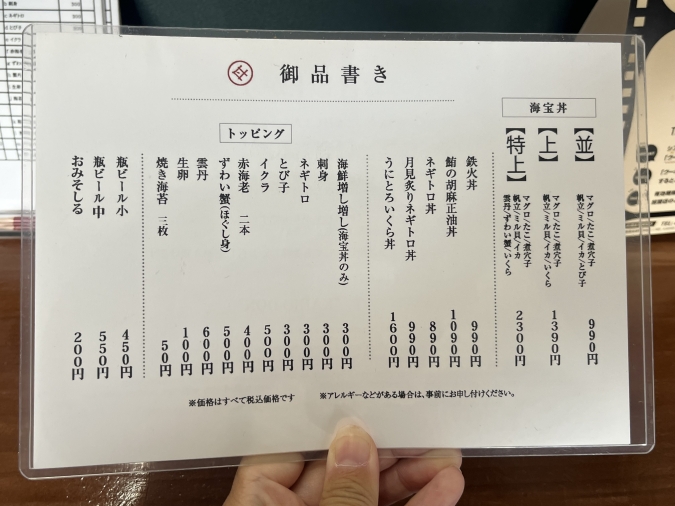 御品書き
海宝丼
【並】 マグロ/たこ/煮穴子
帆立/ミル貝/イカ/とび子 990円
【上】 マグロ/たこ/煮穴子
帆立/ミル貝/イカ/いくら 1390円
【特上】 マグロ/たこ/煮穴子
帆立/ミル貝/イカ
雲丹/ずわい蟹/いくら 2300円
鉄火丼 990円
鮪の胡麻正油丼 1090円
ネギトロ丼 890円
月見炙りネギトロ丼 990円
うにとろいくら丼 1600円
トッピング
海鮮増し増し(海宝丼のみ) 300円
刺身 300円
ネギトロ 300円
とび子 300円
イクラ 500円
赤海老 二本 400円
ずわい蟹(ほぐし身) 500円
雲丹 600円
生卵 100円
焼き海苔 三枚 50円
瓶ビール小 450円
瓶ビール中 550円
おみそしる 200円
※価格はすべて税込価格です
※アレルギーなどがある場合は、事前にお申し付けください。